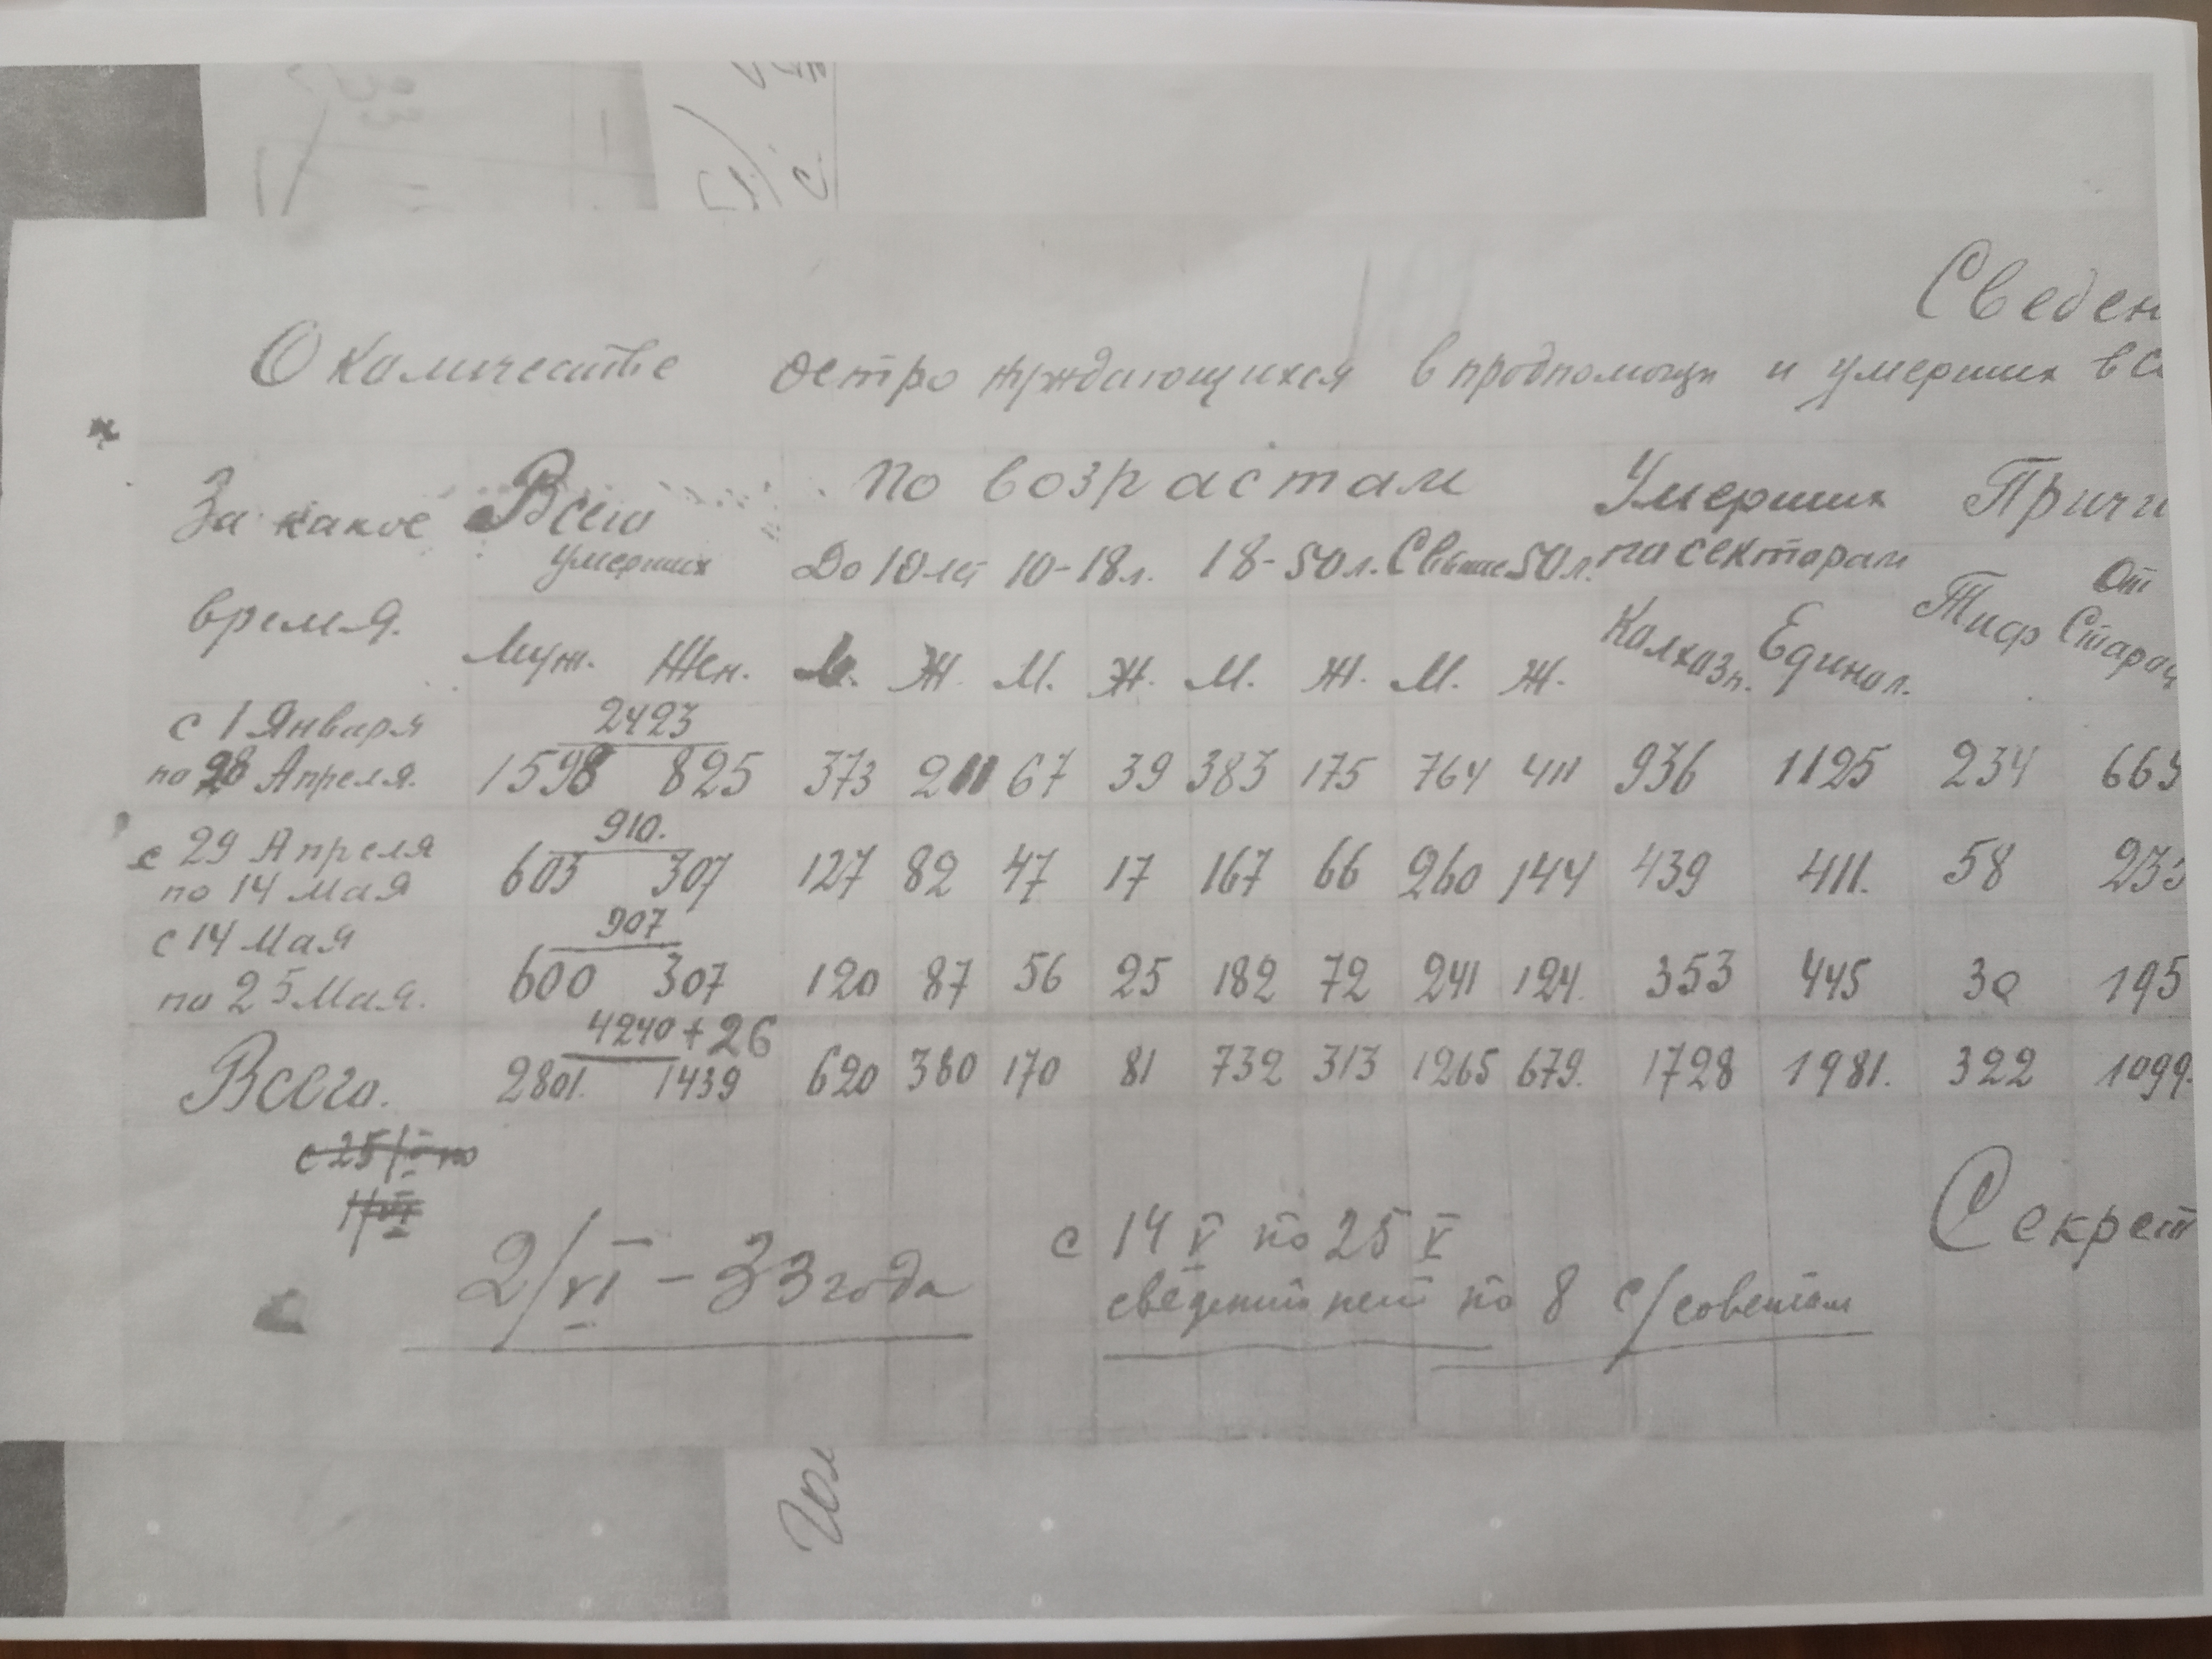 Сведен
О количестве остро нуждающихся в продпомощи и умерших в С
За какое время.
Всего умерших
По возрастам
Умерших по секторам
Причи
До 10 лет 10-18 л. 18-50 л. Свыше 50 л.
Колхозн. Единол. Тиф От Старос
Муж. Жен. М. Ж. М. Ж. М. Ж. М. Ж.
с 1 Января 2423
по 28 Апреля. 1598 825 373 211 67 39 383 175 764 411 936 1125 234 665
с 29 Апреля 910.
по 14 Мая 603 307 127 82 47 17 167 66 260 144 439 411. 58 233
с 14 Мая 907
по 25 Мая. 600 307 120 87 56 25 182 72 241 124. 353 445 30 195
4240 + 26
Всего. 2801. 1439 620 380 170 81 732 313 1265 679. 1728 1981. 322 1099.
с 25/V по
1/VI
2/VI - 33 года
с 14 V по 25 V
сведений нет по 8 с/советам
Секрет